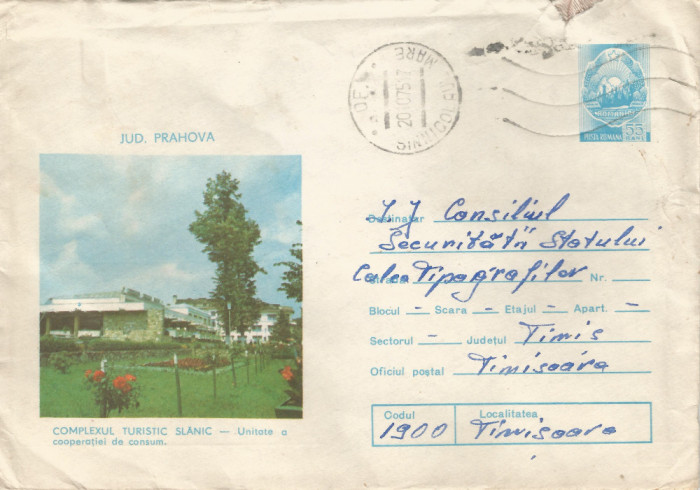 JUD. PRAHOVA
COMPLEXUL TURISTIC SLĂNIC — Unitate a
cooperației de consum.
SÎNNICOLAU MARE
20 075 17
POSTA ROMANA 55
Destinatar I.J Consiliul
Securității Statului
Calea Tipografilor Nr.
Blocul — Scara — Etajul — Apart. —
Sectorul — Județul Timis
Oficiul poștal Timisoara
Codul Localitatea
1900 Timisoara